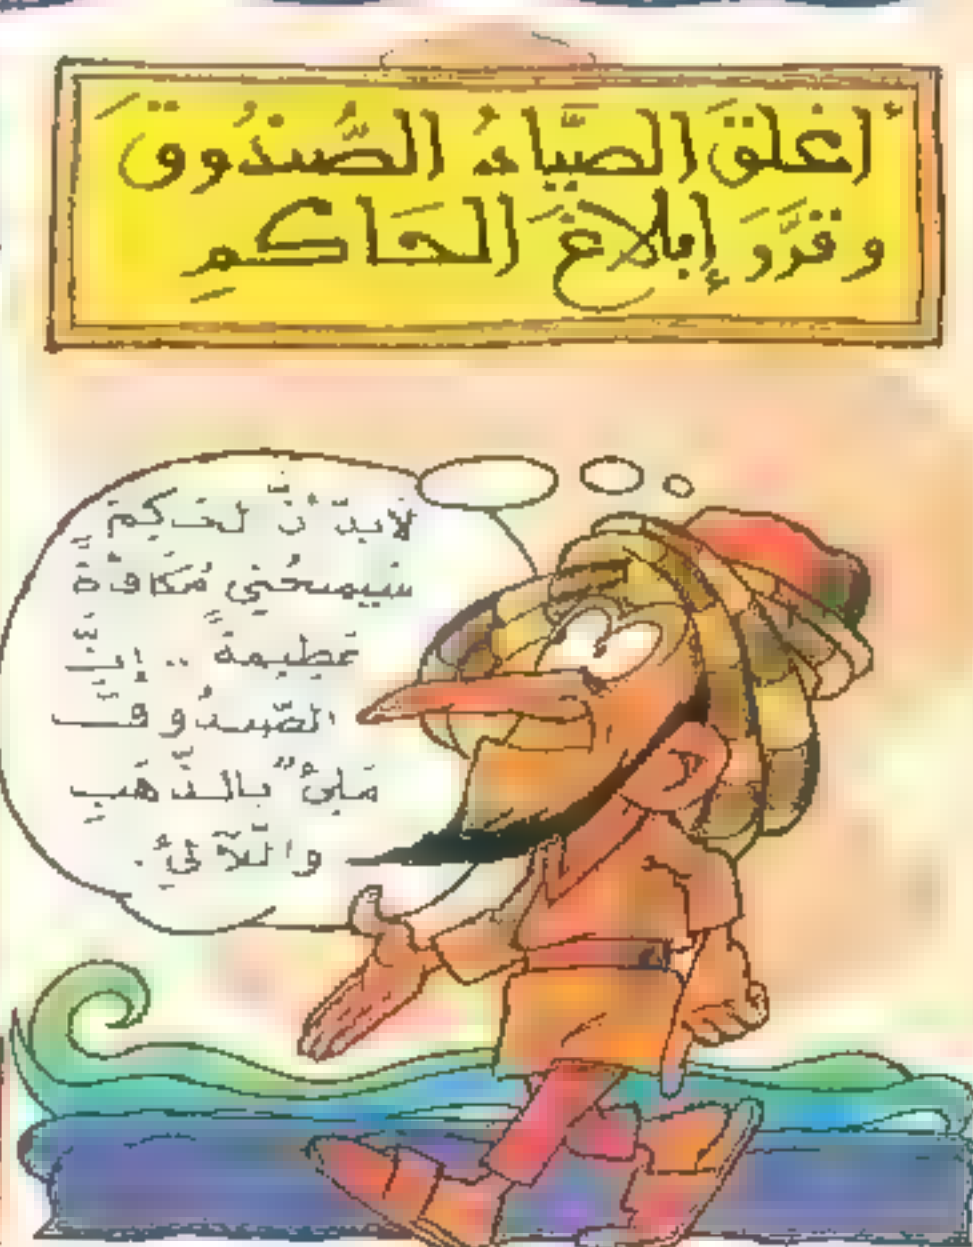 أغلقَ الصيَّادُ الصُّندُوقَ
وقرَّرَ إبلاغَ الحَاكمِ
لَابدّ أنّ الحَـاكِمَ
سَيمنحُني مُكَافأةً
عَظِيمةً .. إنَّ
الصّنـدُوقَ
مَليءٌ بالذَّهَبِ
والّلآلئِ.